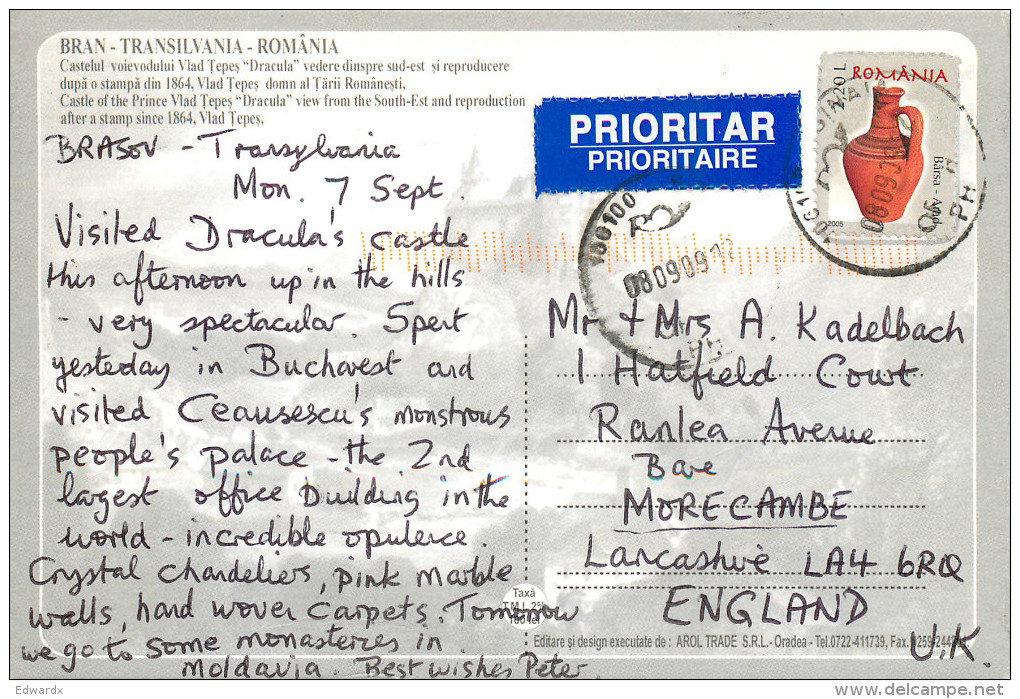 BRAN - TRANSILVANIA - ROMÂNIA
Castelul voievodului Vlad Țepeș “Dracula” vedere dinspre sud-est și reproducere
după o stampă din 1864, Vlad Țepeș domn al Țării Românești,
Castle of the Prince Vlad Țepeș “Dracula” view from the South-Est and reproduction
after a stamp since 1864, Vlad Țepeș,
BRASOV - Transylvania
Mon. 7 Sept.
Visited Dracula's castle
this afternoon up in the hills
- very spectacular. Spent
yesterday in Bucharest and
visited Ceausescu's monstrous
people's palace - the 2nd
largest office building in the
world - incredible opulence.
Crystal chandeliers, pink marble
walls, hand woven carpets. Tomorrow
we go to some monasteries in
Moldavia. Best wishes Peter
PRIORITAR
PRIORITAIRE
ROMÂNIA
2.20 L
Bârsa - Arad
2005
106100
080909
080909
Mr + Mrs A. Kadelbach
1 Hatfield Court
Ranlea Avenue
Bare
MORECAMBE
Lancashire LA4 6RQ
ENGLAND
U.K.
Taxă
T.M.L. 2%
100 lei
Editare și design executate de : AROL TRADE S.R.L. - Oradea - Tel.0722-411739, Fax.
Edwardx
www.delcampe.net